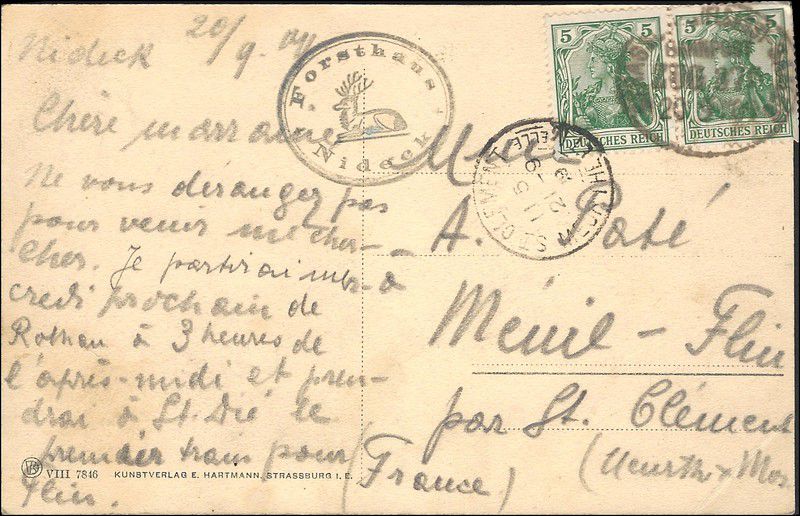 Nideck 20/9. 09
Forsthaus
Nideck
Chère marraine
Ne vous déranger pas
pour venir me cher-
cher. Je partirai mer-
credi prochain de
Rothau à 3 heures de
l'après-midi et pren-
drai à St. Dié le
premier train pour
Flin.
5
5
DEUTSCHES REICH
DEUTSCHES REICH
ST CLEMENT
A. Paté
à
Ménil-Flin
par St. Clément
(Meurthe Mos
(France)
VIII 7846 KUNSTVERLAG E. HARTMANN, STRASSBURG I. E.